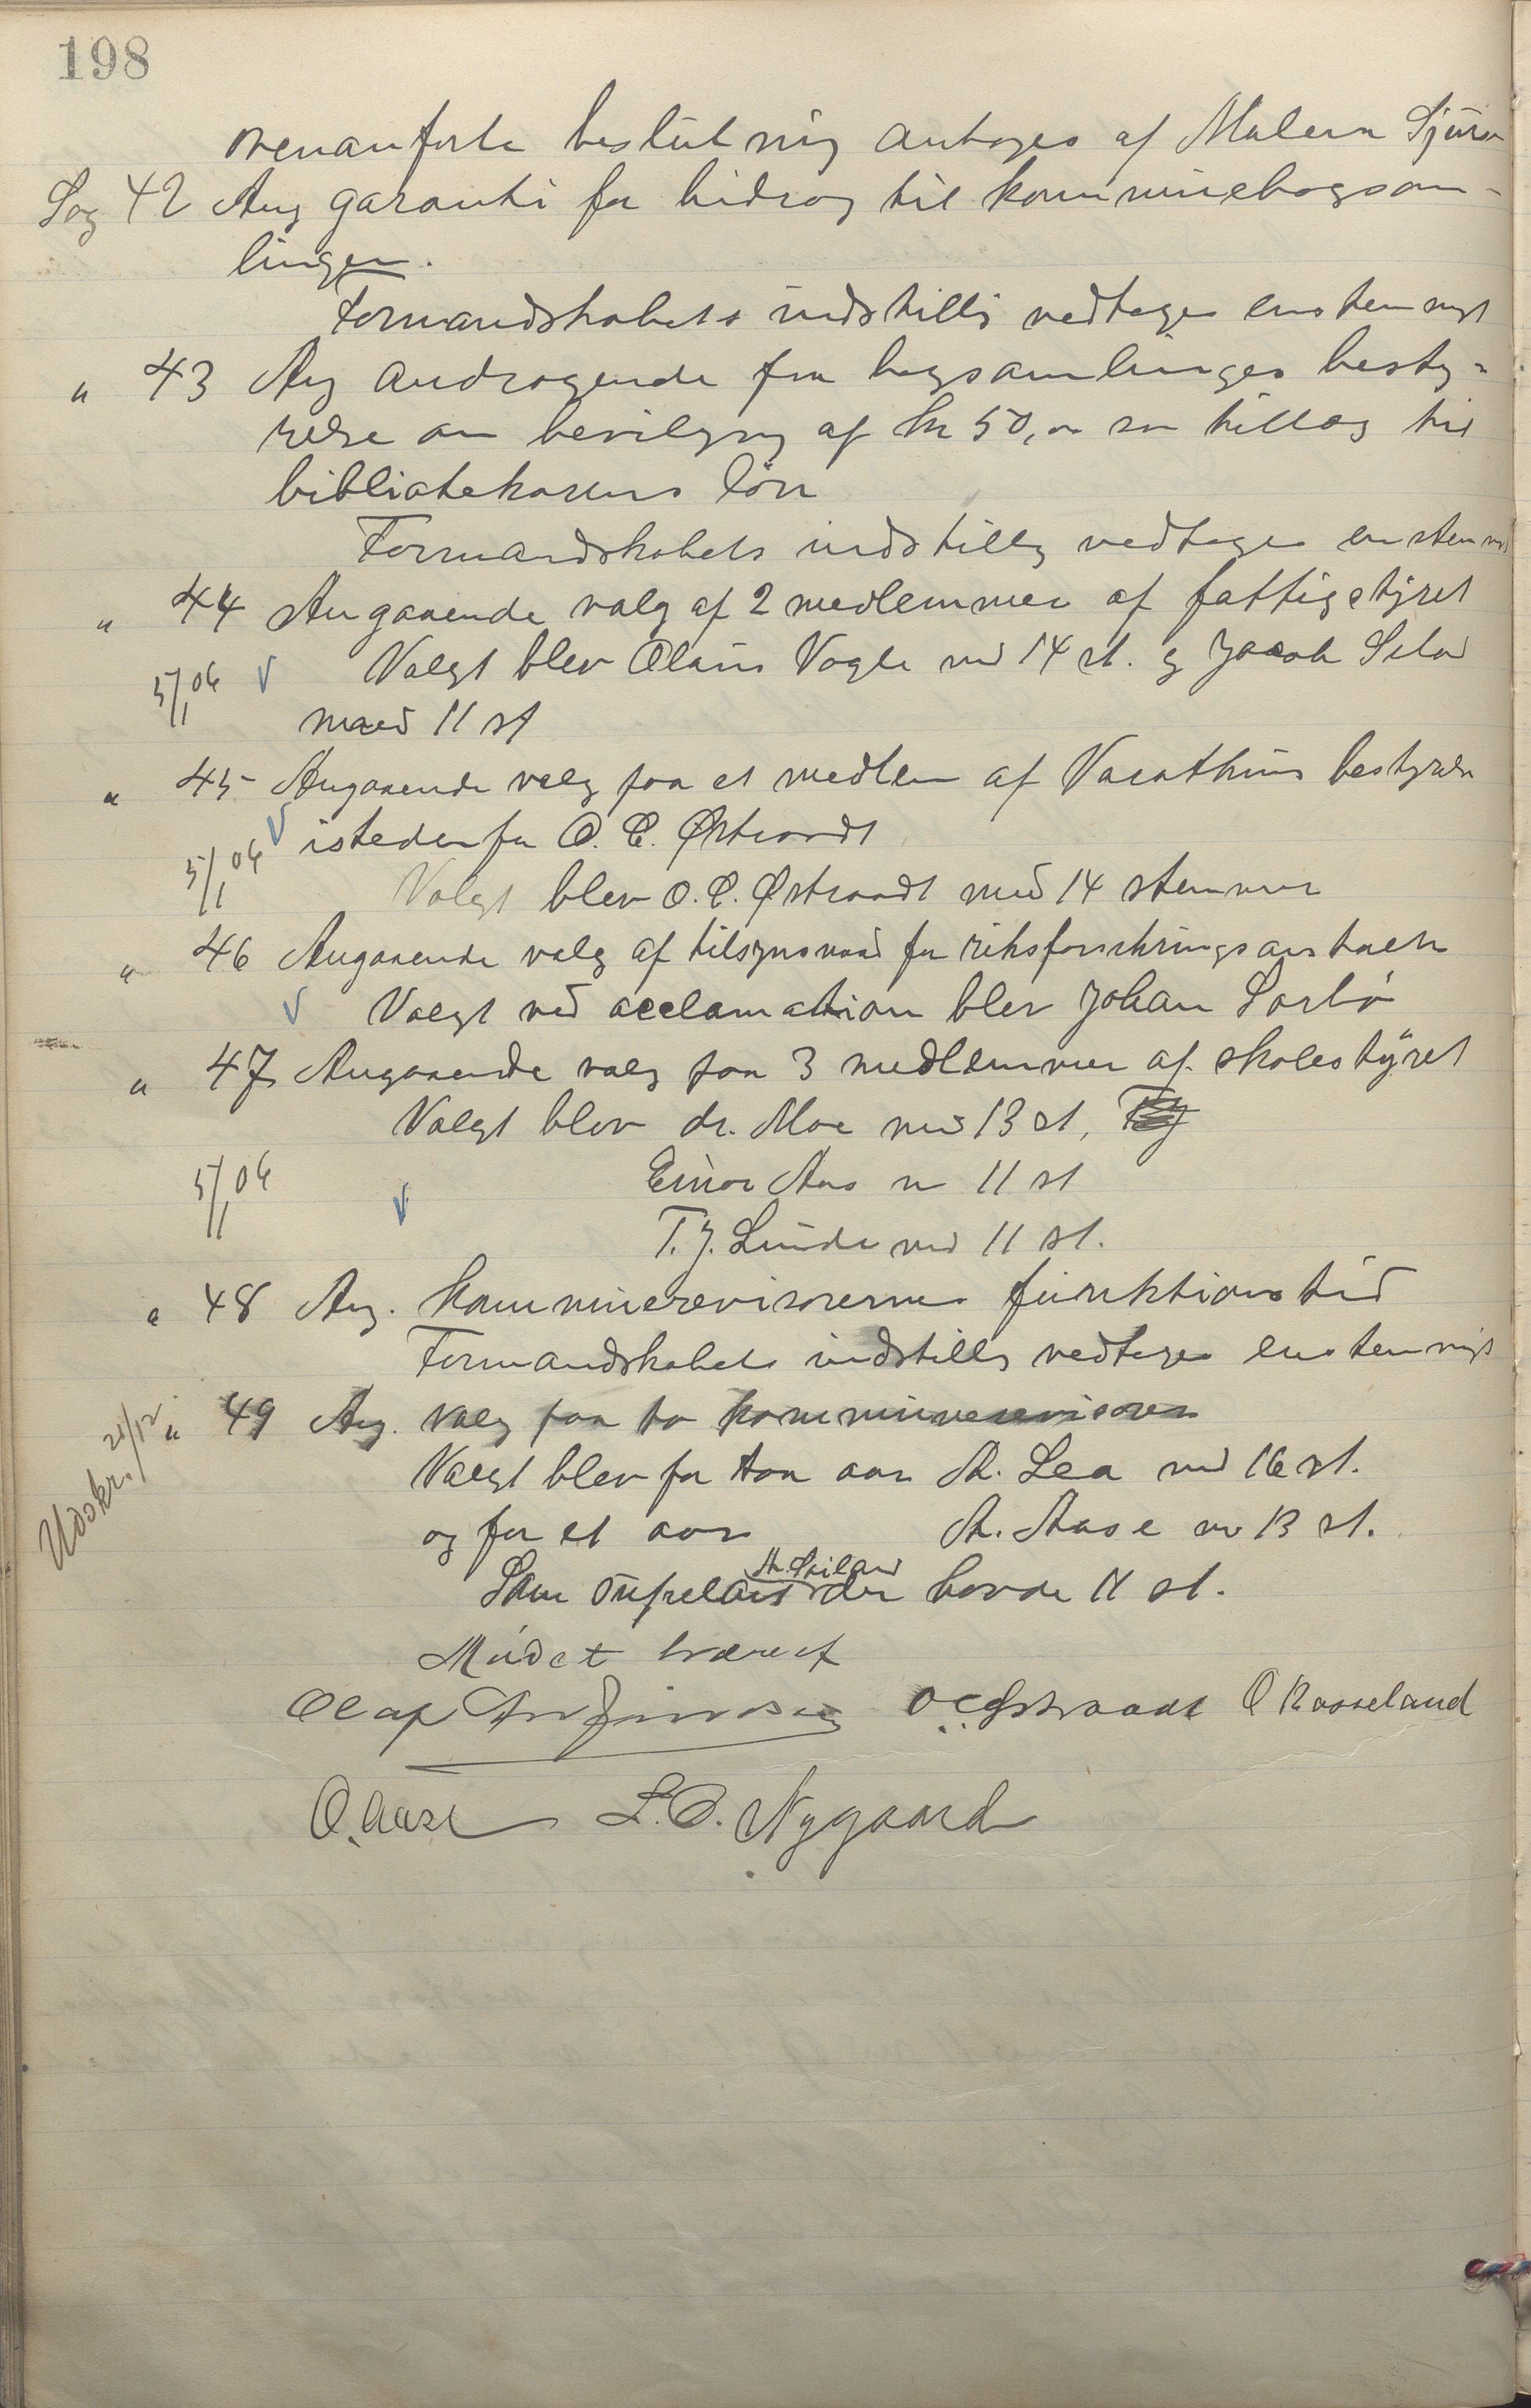 198
ovenanførte beslutning antoges af Malern Sjurs
Sag 42 Ang garanti for bidrag til kommunebogsam-
lingen.
Formandskabets indstillg vedtages enstemmigt
" 43 Ang andragende fra bogsamlinges besty-
relse om bevilgng af kr 50,00 som tillæg til
bibliotekarens løn
Formandskabets indstillg vedtages enstemmigt
" 44 Angaaende valg af 2 medlemmer af fattigstyret
5/1 06 Valgt blev Olaus Vagle med 14 st. og Jacob
med 11 st
" 45 Angaaende valg paa et medlem af Varathuns bestyrelse
5/1 06 istedenfor O. C. Østraadt
Valgt blev O. C. Østraadt med 14 stemmer
" 46 Angaaende valg af tilsynsmand for riksforsikringsanstalten
Valgt ved acclamation blev Johan Sørbø
" 47 Angaaende valg paa 3 medlemmer af skolestyret
Valgt blev dr. Moe med 13 st,
5/1 06 Einar Aas m 11 st
T. J. Lunde med 11 st.
" 48 Ang. kommunerevisorernes funktionstid
Formandskabets indstillg vedtages enstemmigt
Udskr. 28/12 " 49 Ang. valg paa to kommunerevisorer
Valgt blev for too aar A. Lea med 16 st.
og for et aar A. Aase m 13 st.
A. Skiland
Som suppleant der havde 11 st.
Mødet hævet
Olaf OCØstraadt O Rosseland
O. Aase L. O. Nygaard